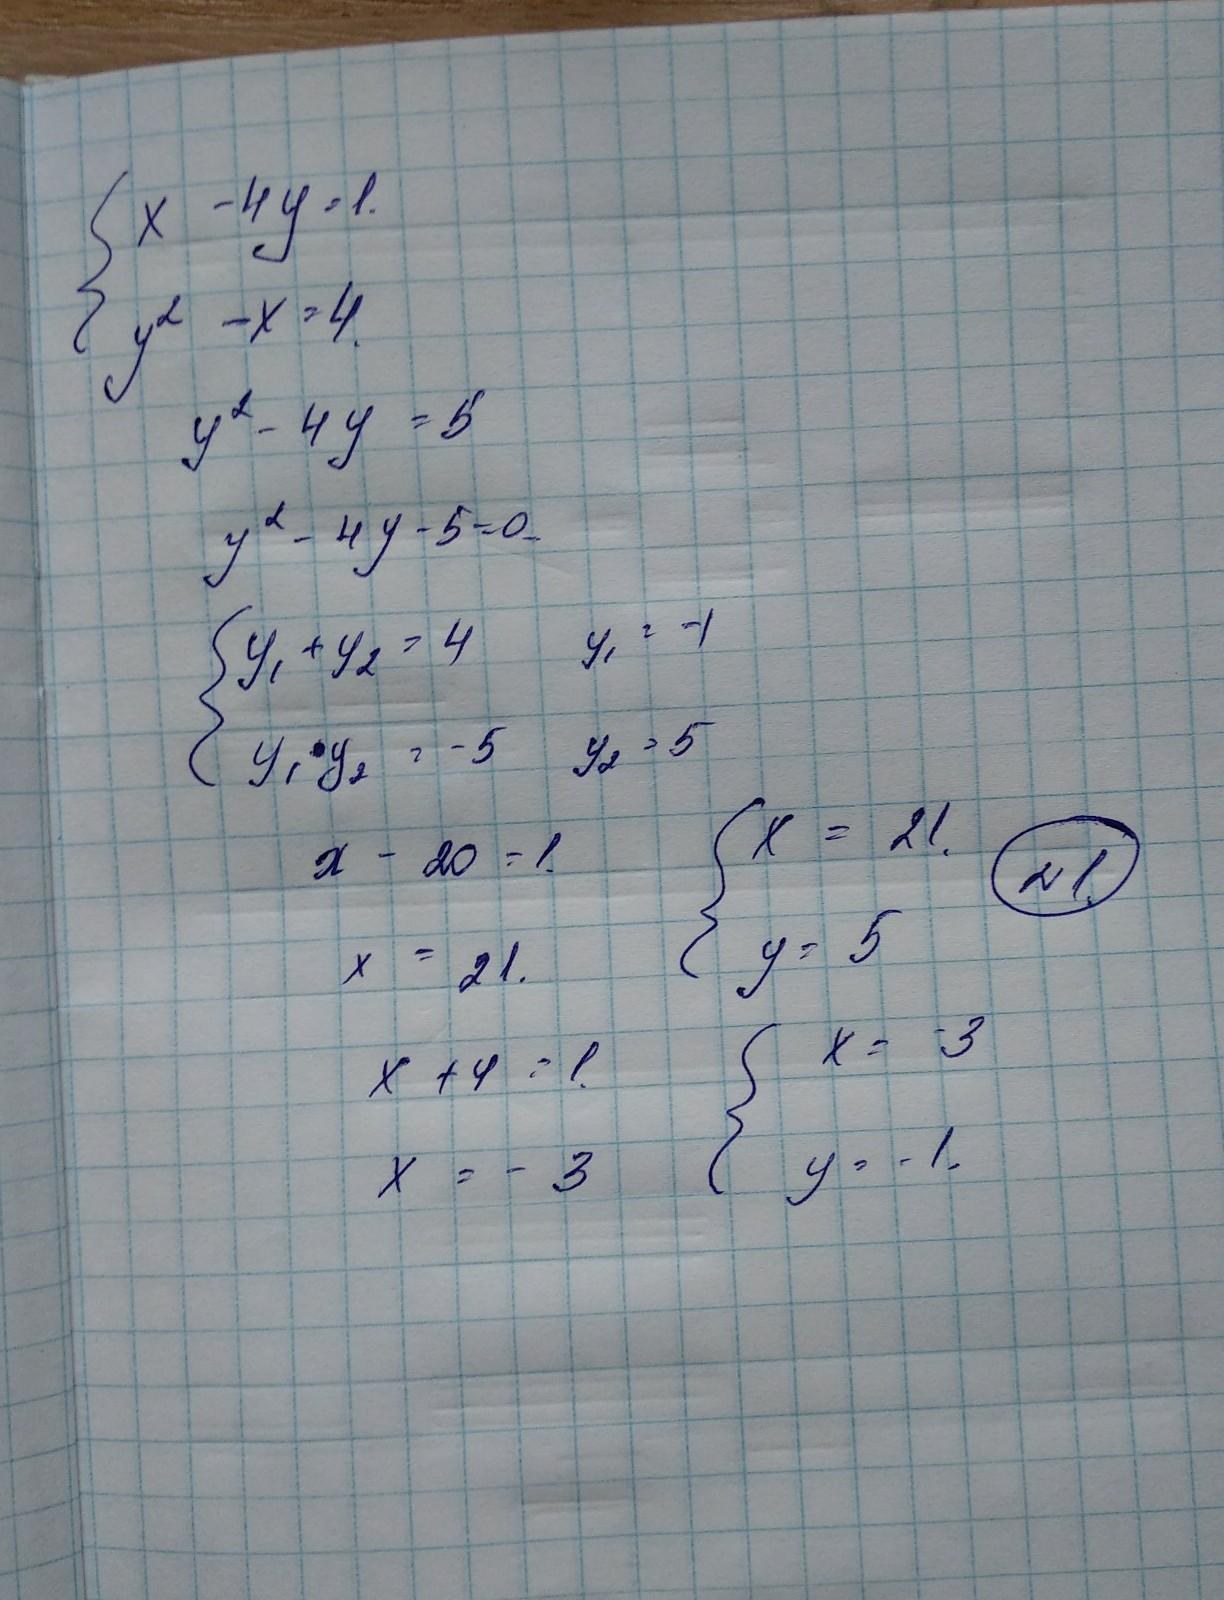 x - 4y = 1.
y² - x = 4.
y² - 4y = 5
y² - 4y - 5 = 0
y₁ + y₂ = 4 y₁ = -1
y₁ • y₂ = -5 y₂ = 5
x - 20 = 1. x = 21. 21.
x = 21. y = 5
x + 4 = 1. x = -3
x = -3 y = -1.